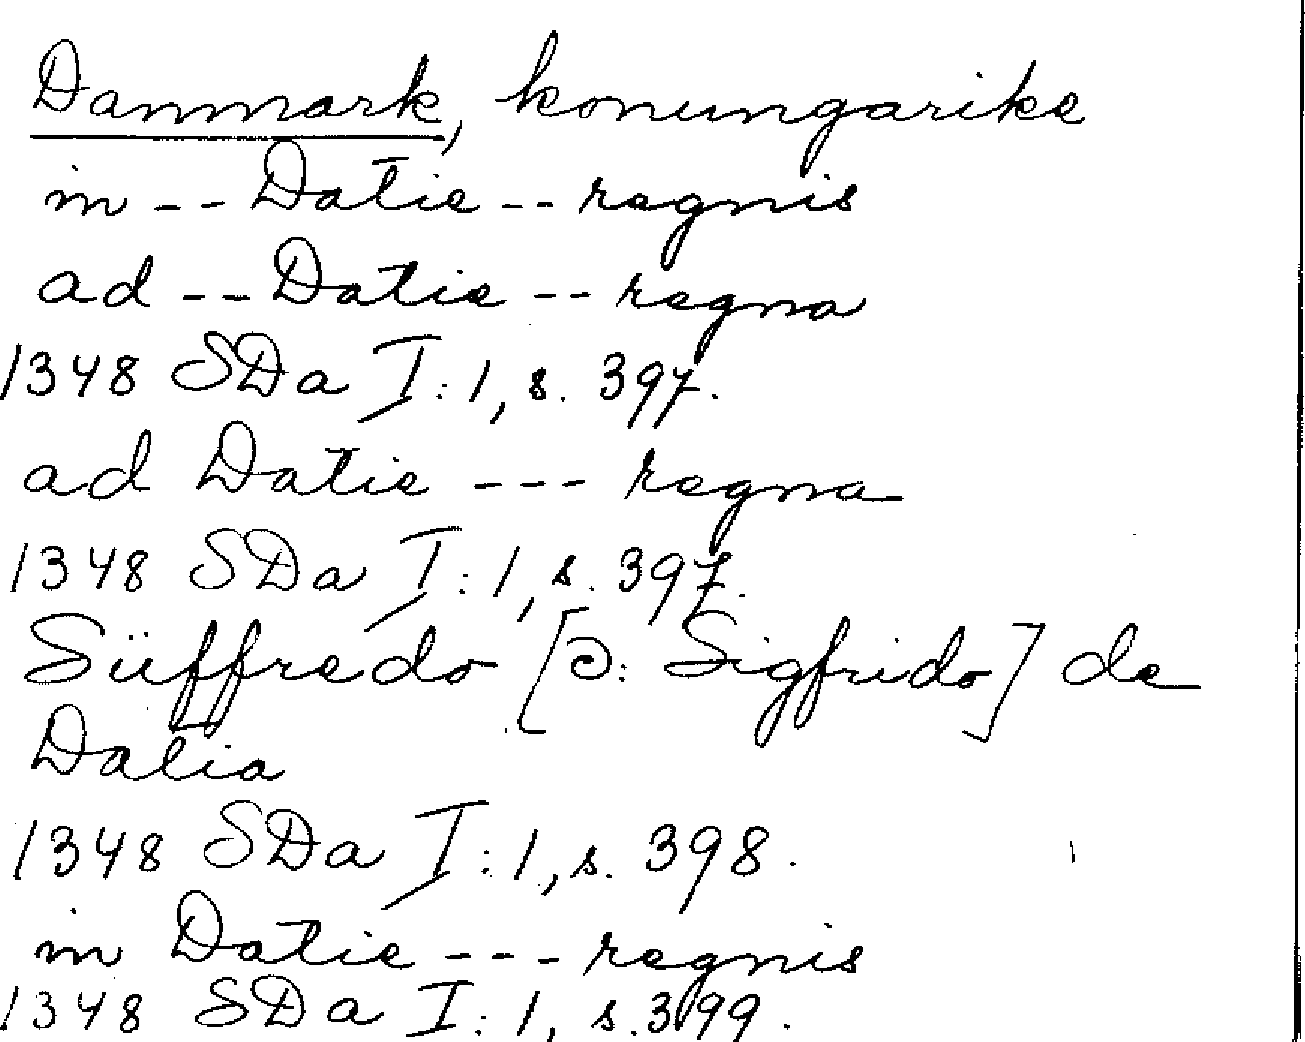 Danmark, konungarike
in -- Datie -- regnis
ad -- Datie -- regna
1348 SDa I:1, s. 397.
ad Datie --- regna
1348 SDa I:1, s. 397.
Süffredo [ɔ: Sigfrido] de
Datia
1348 SDa I:1, s. 398.
in Datie --- regnis
1348 SDa I:1, s. 399.